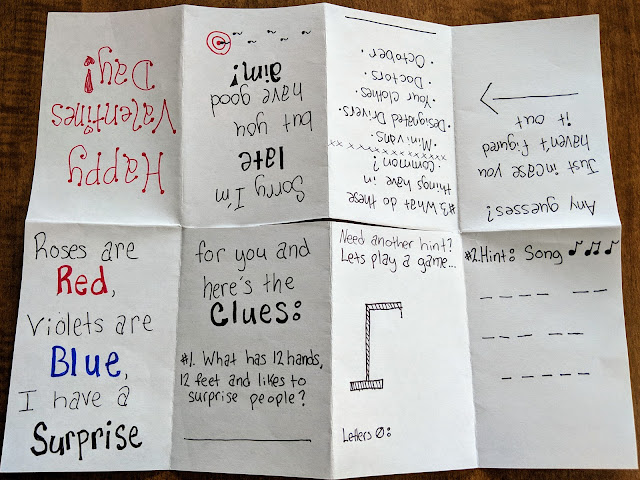 Roses are
Red,
Violets are
Blue,
I have a
Surprise
for you and
here's the
Clues:
#1. What has 12 hands,
12 feet and likes to
surprise people?
Need another hint?
Lets play a game...
Letters Ø:
#2. Hint: Song
Any guesses?
Just incase you
haven't figured
it out
#3 What do these
things have in
Common?
xxxxxxxxxxxxxxxxxx
· Mini vans ·
· Designated Drivers ·
· Your clothes ·
· Doctors ·
· October ·
Sorry I'm
late
but you
have good
aim!
Happy
Valentines
Day!